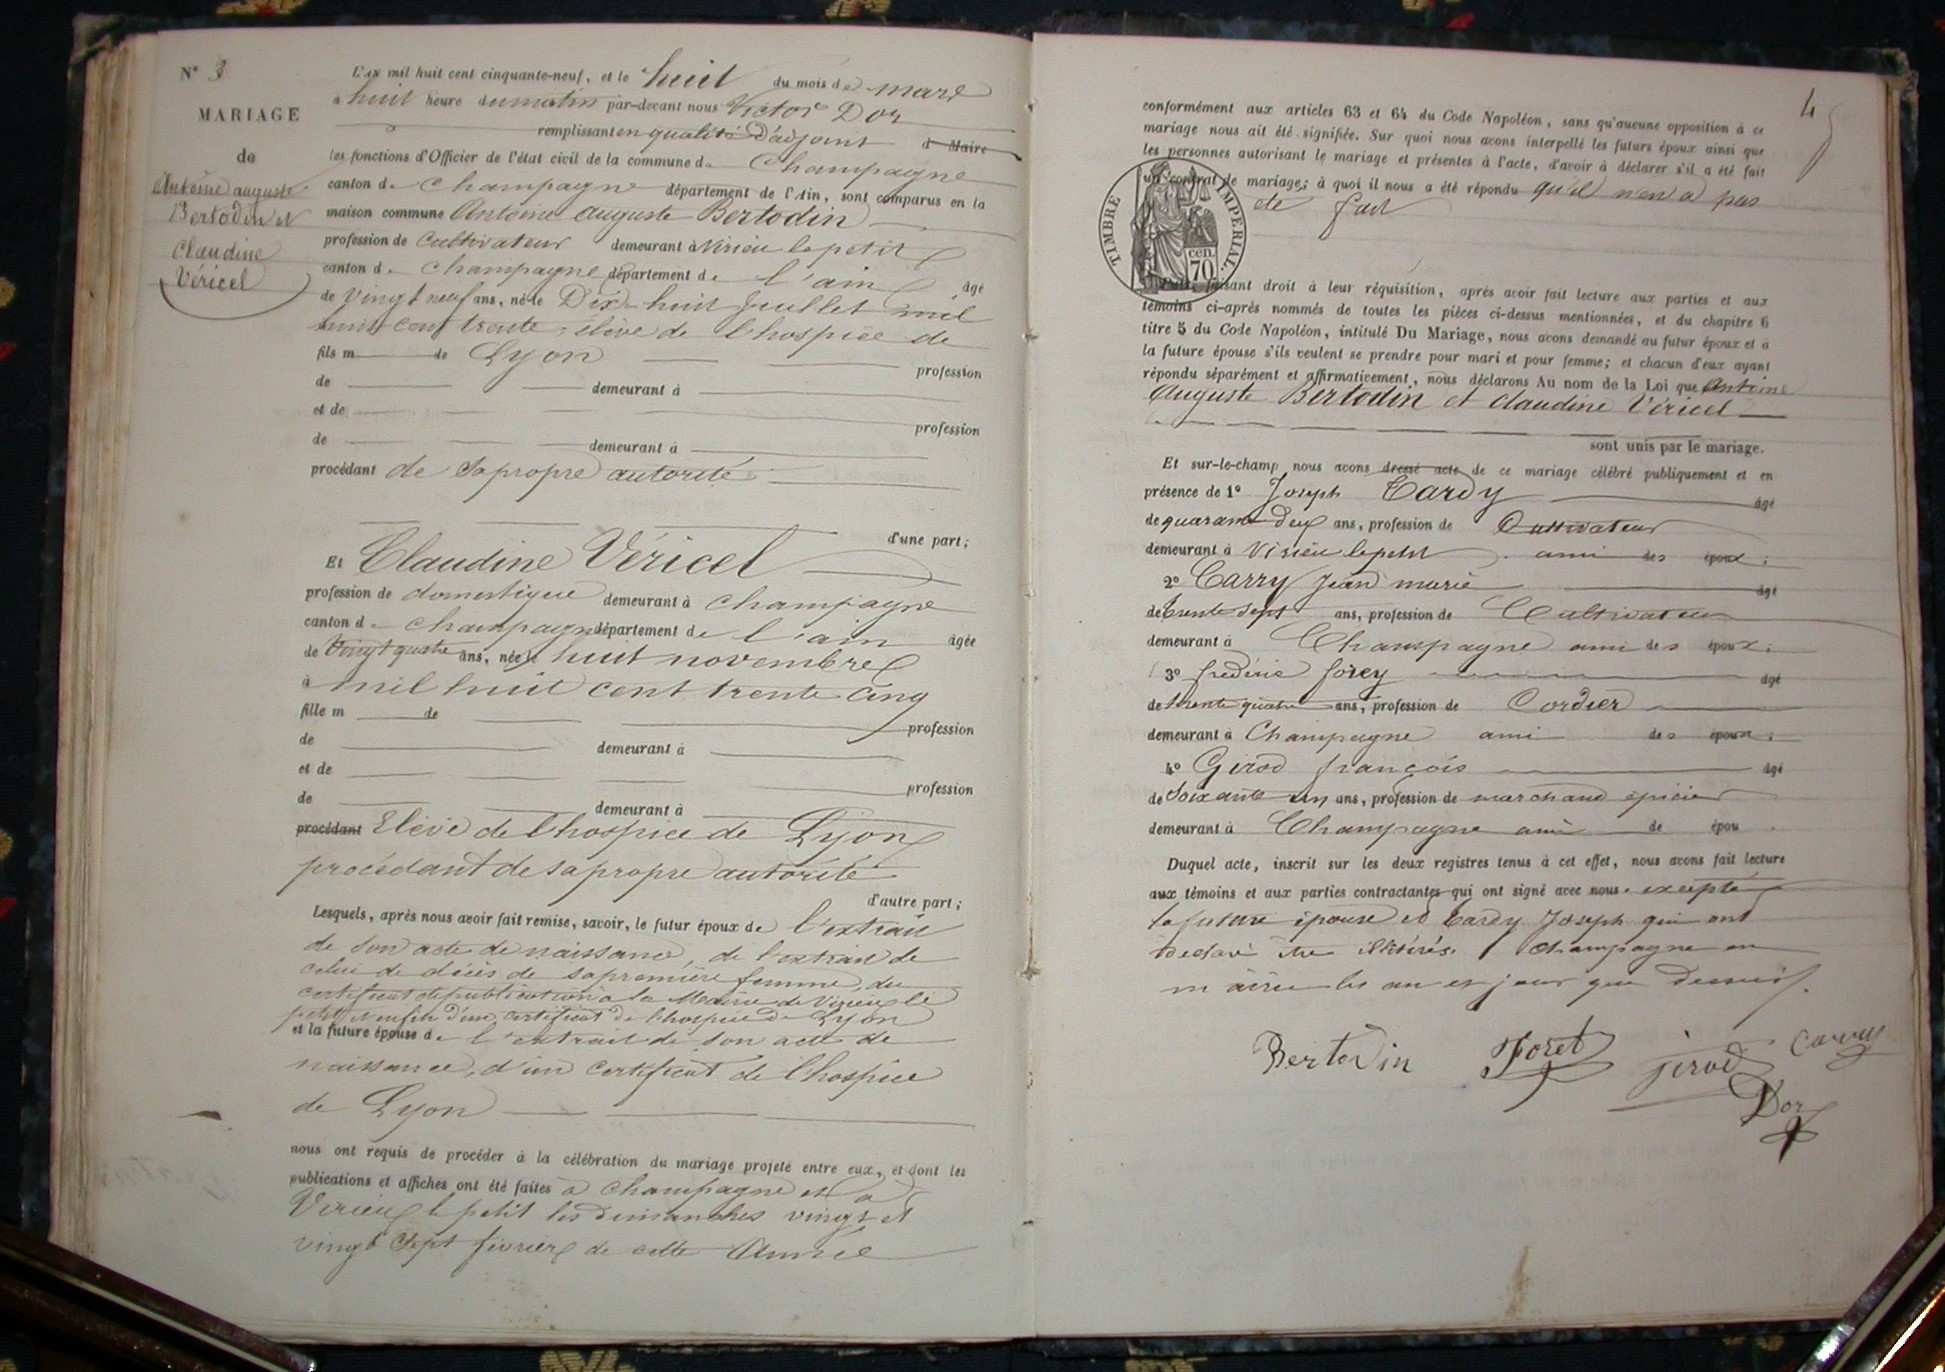 N° 3
MARIAGE
de
Antoine auguste
Bertodin et
Claudine
Véricel
L'an mil huit cent cinquante-neuf, et le huit du mois de mars
à huit heure du matin par-devant nous Victor Dor
remplissant en qualité D'adjoint d Maire
les fonctions d'Officier de l'état civil de la commune de Champagne
canton de Champagne département de l'Ain, sont comparus en la
maison commune Antoine auguste Bertodin
profession de Cultivateur demeurant à Virieu le petit
canton de Champagne département de l'ain âgé
de vingt neuf ans, né le Dix-huit Juillet mil
huit cent trente, élève de l'hospice de
fils m de Lyon profession
de demeurant à
et de profession
de demeurant à
procédant de sa propre autorité
d'une part;
Et Claudine Véricel
profession de domestique demeurant à Champagne
canton de Champagne département de l'ain âgée
de Vingt quatre ans, née le huit novembre
à mil huit cent trente cinq
fille m de profession
de demeurant à
et de profession
de demeurant à
procédant Elève de l'hospice de Lyon
procédant de sa propre autorité
d'autre part;
Lesquels, après nous avoir fait remise, savoir, le futur époux de l'extrait
de son acte de naissance, de l'extrait de
celui de décès de sa première femme, du
certificat de publication à la Mairie de Virieu le
petit et enfin d'un certificat de l'hospice de Lyon
et la future épouse de l'extrait de son acte de
naissance, d'un certificat de l'hospice
de Lyon
nous ont requis de procéder à la célébration du mariage projeté entre eux, et dont les
publications et affiches ont été faites à Champagne et à
Virieu le petit les dimanches vingt et
vingt sept février de cette Année
4
conformément aux articles 63 et 64 du Code Napoléon, sans qu'aucune opposition à ce
mariage nous ait été signifiée. Sur quoi nous avons interpellé les futurs époux ainsi que
les personnes autorisant le mariage et présentes à l'acte, d'avoir à déclarer s'il a été fait
un contrat de mariage; à quoi il nous a été répondu qu'il n'en a pas
été fait
TIMBRE IMPERIAL
70 cen.
faisant droit à leur réquisition, après avoir fait lecture aux parties et aux
témoins ci-après nommés de toutes les pièces ci-dessus mentionnées, et du chapitre 6
titre 5 du Code Napoléon, intitulé Du Mariage, nous avons demandé au futur époux et à
la future épouse s'ils veulent se prendre pour mari et pour femme; et chacun d'eux ayant
répondu séparément et affirmativement, nous déclarons Au nom de la Loi que Antoine
Auguste Bertodin et Claudine Véricel
sont unis par le mariage.
Et sur-le-champ nous avons dressé acte de ce mariage célébré publiquement et en
présence de 1° Joseph Tardy âgé
de quarante Deux ans, profession de Cultivateur
demeurant à Virieu le petit ami des époux;
2° Carry Jean marie âgé
de trente sept ans, profession de Cultivateur
demeurant à Champagne ami des époux;
3° frédéric forey âgé
de trente quatre ans, profession de Cordier
demeurant à Champagne ami des époux;
4° Girod françois âgé
de Soixante un ans, profession de marchand épicier
demeurant à Champagne ami de épou
Duquel acte, inscrit sur les deux registres tenus à cet effet, nous avons fait lecture
aux témoins et aux parties contractantes qui ont signé avec nous excepté
la future épouse et Tardy Joseph qui ont
déclaré être illitérés. Champagne en
mairie les an et jour que Dessus.
Bertodin Foret jirod Carry
Dor